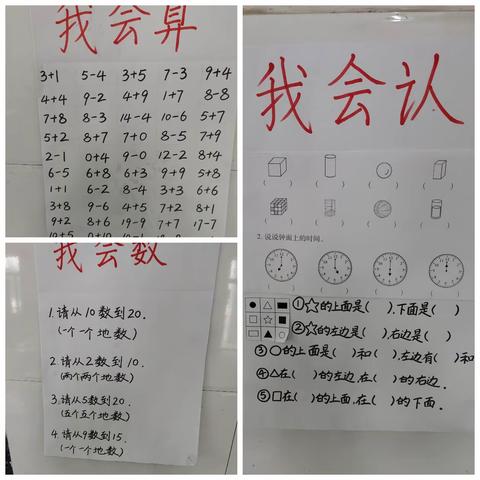 我会算
3+1 5-4 3+5 7-3 9+4
4+4 9-2 4+9 1+7 8-8
7+8 8-3 14-4 10-6 5+7
5+2 8+7 7+0 8-5 7+9
2-1 0+4 9-0 12-2 8+4
6-5 6+8 6+3 9+9 5+8
1+1 6-2 8-4 3+3 6+6
3+8 9-6 4+5 7+2 8+1
9+2 8+6 19-9 7+7 17-7
10+5
我会数
1.请从10数到20.
(一个一个地数)
2.请从2数到10.
(两个两个地数)
3.请从5数到20.
(五个五个地数)
4.请从9数到15.
(一个一个地数)
我会认
( ) ( ) ( ) ( )
( ) ( ) ( ) ( )
2.说说钟面上的时间。
( ) ( ) ( ) ( )
①☆的上面是( ),下面是( )
②☆的左边是( ),右边是( )
③○的上面是( )和( ),左边有( )和
④△在( )的左边,在( )的右边.
⑤□在( )的上面,在( )的下面.